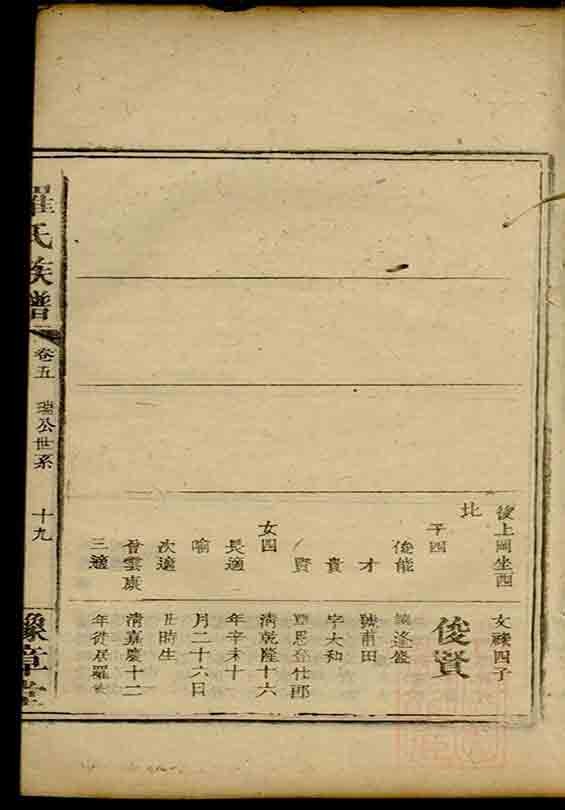 後上岡坐西
北
子四
俊能
才
貴
賢
女四
長適
喻
次適
曾雲康
三適
文祿四子
俊賢
號莆田
字大和
恩登仕郎
清乾隆十六
年辛未十
月二十六日
丑時生
清嘉慶十二
年
羅氏族譜
卷五
瑞公世系
十九
豫章堂